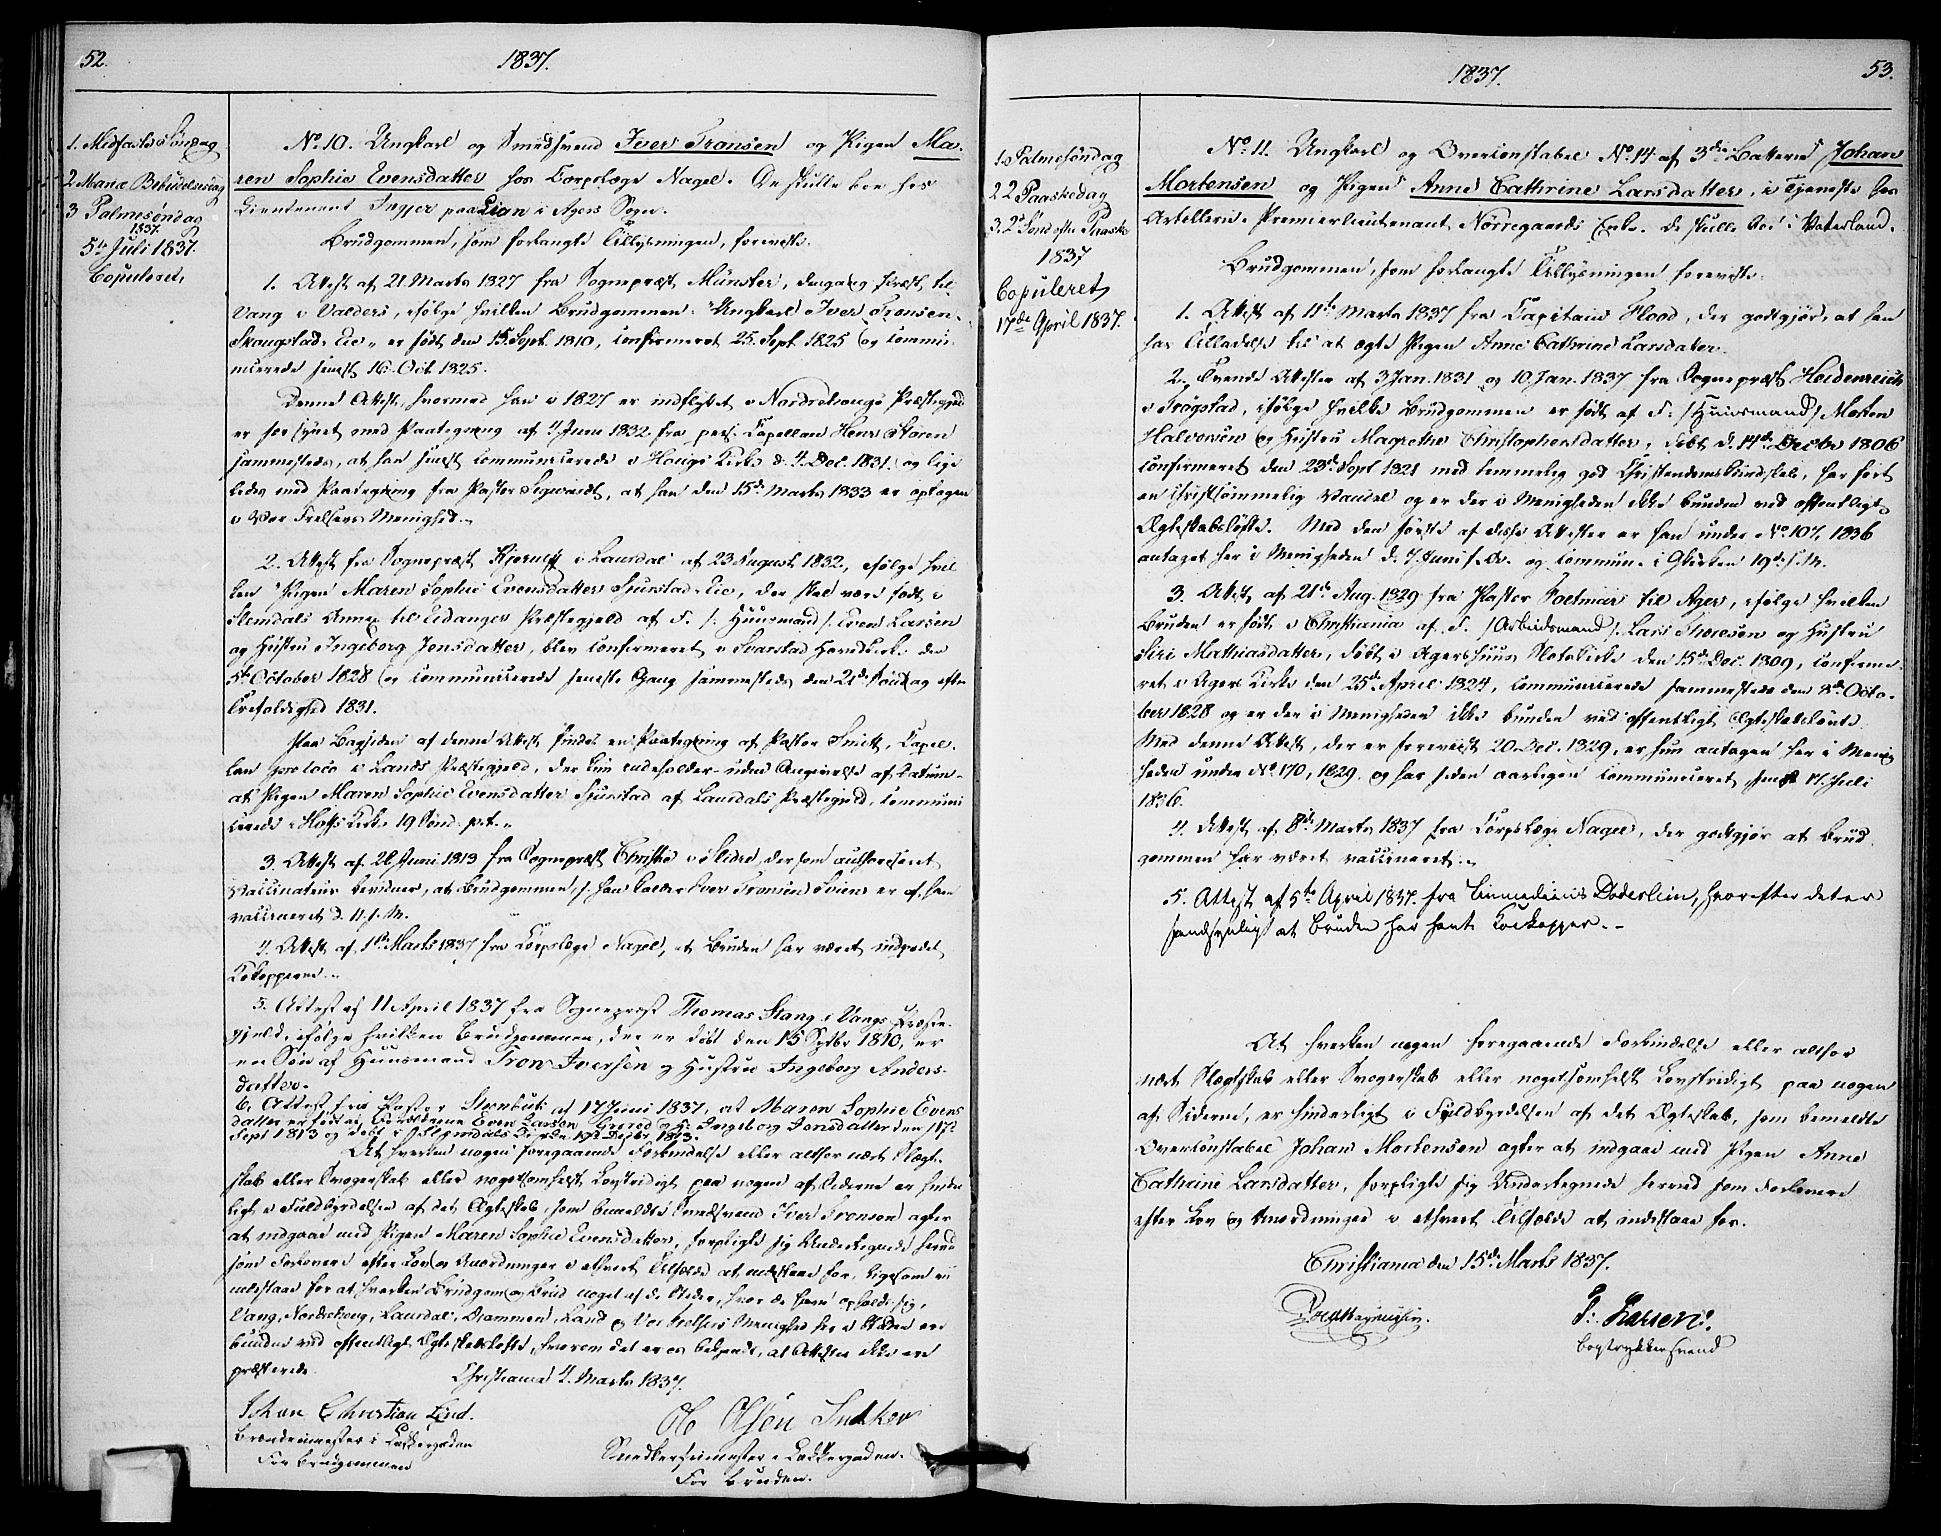 52.
1837.
1. Midfaste Söndag
2. Mariæ Bebudelsesdag
3 Palmesöndag
1837.
5te Juli 1837.
Copuleret,
No. 10. Ungkarl og Smedsvend Iver Tronsen og Pigen Ma-
ren Sophie Evensdatter hos Corpslæge Nagel. De skulle boe hos
Lieutenant Juyyer paa Lian i Agers Sogn.
Brudgommen, som forlangte Tillysningen, foreviste:
1. Attest af 21 Marts 1827 fra Sognepræst Münster, dengang Præst til
Vang i Valders, ifølge hvilken Brudgommen: Ungkarl Iver Tronsen
Skougstad-Eie, er født den 15. Sept. 1810, confirmeret 25. Sept. 1825 og commu-
nicerede senest 16. Oct. 1825.
Denne Attest, hvormed han i 1827 er indflyttet i Nordrehougs Præstegjeld
er forsynet med Paategning af 4 Juni 1832 fra pers. Capellan Henr. Steren
sammesteds, at han senest communicerede i Hougs Kirke d. 4. Dec. 1831 og lige-
ledes med Paategning fra Pastor Sigwardt, at han den 15de Marts 1833 er optagen
i Vor Frelsers Menighed.
2. Attest fra Sognepræst Kjerulff i Laurdal af 23 August 1832, ifølge hvil-
ken Pigen Maren Sophie Evensdatter Sjuestad-Eie, der skal være født i
Slemdals Annex til Eidanger Præstegjeld af F. /: Huusmand /: Even Larsen
og Hustru Ingeborg Jensdatter, blev confirmeret i Svarstad Hovedkirke den
5te October 1828 og communicerede seneste Gang sammesteds den 21de Söndag efter
Trefoldighed 1831.
Paa Bagsiden af denne Attest findes en Paategning af Pastor Smitt, Capel-
lan pro loco i Lands Præstegjeld, der kun indeholder uden Angivelse af Datum
at Pigen Maren Sophie Evensdatter Sjuestad af Laurdals Præstegjeld, communi-
cerede i Hoffs Kirke 19 Sönd. p. t.
3. Attest af 28 Juni 1813 fra Sognepræst Christie i Slidre, der som authoriseret
Vaccinateur bevidner, at Brudgommen /: han kalder Iver Tronsen Sviens er af ham
vaccineret d. 11. s. M.
4. Attest af 1ste Marts 1837 fra Corpslæge Nagel, at Bruden har været indpodet
Kokopperne.
5. Attest af 11 April 1837 fra Sognepræst Thomas Stang i Vangs Præste-
gjæld, ifølge hvilken Brudgommen, der er døbt den 15 Septbr 1810, er
en Søn af Huusmand Tron Iversen og Hustru Ingeborg Anders-
datter.
6. Attest fra Pastor Steenbuch af 17 Juni 1837, at Maren Sophie Evens
datter er født af Forældrene Even Larsen og H. Ingeborg Jonsdatter den 11te
Sept 1813 og døbt i Slemdals Kirke 19de Decbr. 1813.
At hverken nogen foregaaende Forbindelse eller altfor nært Slægt-
skab eller Svogerskab eller nogetsomhelst Lovstridigt paa nogen af Siderne er hinder-
ligt i Fuldbyrdelsen af det Ægteskab, som bemeldte Smedsvend Iver Tronsen agter
at indgaae med Pigen Maren Sophie Evensdatter, forpligte sig Undertegnede herved
som Forlovere efter Lov og Anordninger i ethvert Tilfælde at indestaae for, ligesom vi
indestaae for at hverken Brudgom og Brud noget af de Steder, hvor de have opholdt sig,
Vang, Nordrehoug, Laurdal, Drammen, Land og Vor Frelsers Menighed her i Staden er
bundne ved offentligt Ægteskabsløfte, hvorom det er os bekjendt, at Attester ikke ere
præsterede.
Christiania 4. Marts 1837.
Johan Christian Lind.
Brændemester i Lakkergaden
For brudgommen
Ole Olsen Snekker
Snedkersmester i Lakkergaden.
For bruden.
1837.
53.
1. Palmesöndag
2 2 Paaskedag
3. 2 Sönd efter Paaske
1837
Copuleret,
17de April 1837.
No. 11. Ungkarl og Overconstabel No. 14 af 3die Batterie Johan
Mortensen og Pigen Anne Cathrine Larsdatter, i Tjeneste hos
Artillerie-Premierlieutenant Nørregaards Enke. De skulle boe i Vaterland.
Brudgommen, som forlangte Tillysningen foreviste:
1. Attest af 11te Marts 1837 fra Capitain Flood, der godtgjør, at han
har Tilladelse til at ægte Pigen Anne Cathrine Larsdatter.
2. Tvende Attester af 3 Jan. 1831 og 10. Jan. 1837 fra Sognepræst Heidenreich
i Trøgstad, ifølge hvilke Brudgommen er født af F. /: Huusmand /: Morten
Halvorsen og Hustru Magrethe Christophersdatter, døbt d. 14de Octbr 1806
confirmeret den 23de Sept 1821 med temmelig god Christendomskundskab, har ført
en christsömmelig Vandel og er der i Menigheden ikke bunden ved offentligt
Ægteskabsløfte. Med den første af disse Attester er han under No. 107, 1836
antaget her i Menigheden d. 7 Juni s. A. og commun. i G.kirken 19de s. M.
3. Attest af 21de Aug. 1829 fra Pastor Foelman til Ager, ifølge hvilken
Bruden er født i Christiania af F. /: Arbeidsmand /: Lars Thoresen og Hustru
Siri Mathiasdatter, døbt i Agershuus Slotskirke den 15de Dec. 1809, confirme-
ret i Agers Kirke den 25de April 1824, communicerede sammesteds den 3de Octo-
ber 1828 og er der i Menigheden ikke bunden ved offentligt Ægteskabsløfte.
Med denne Attest, der er foreviist 20. Dec. 1829, er hun antagen her i Menig-
heden under No. 170, 1829 og har siden aarligen communiceret senest 17. Juli
1836.
4. Attest af 8de Marts 1837 fra Corpslæge Nagel, der godtgjør at Brud-
gommen har været vaccineret.
5. Attest af 5te April 1837. fra Cand medicinæ Döderlein, hvorefter det er
sandsynligt at Bruden har havt Koekopper.
At hverken nogen foregaaende Forbindelse eller altfor
nært Slægtskab eller Svogerskab eller nogetsomhelst Lovstridigt paa nogen
af Siderne, er hinderligt i Fuldbyrdelsen af det Ægteskab, som bemeldte
Overconstabel Johan Mortensen agter at indgaae med Pigen Anne
Cathrine Larsdatter, forpligte sig Undertegnede herved som Forlovere
efter Lov og Anordninger i ethvert Tilfælde at indestaae for.
Christiania den 15de Marts 1837.
P. Larsen.
bogtrykkersvend